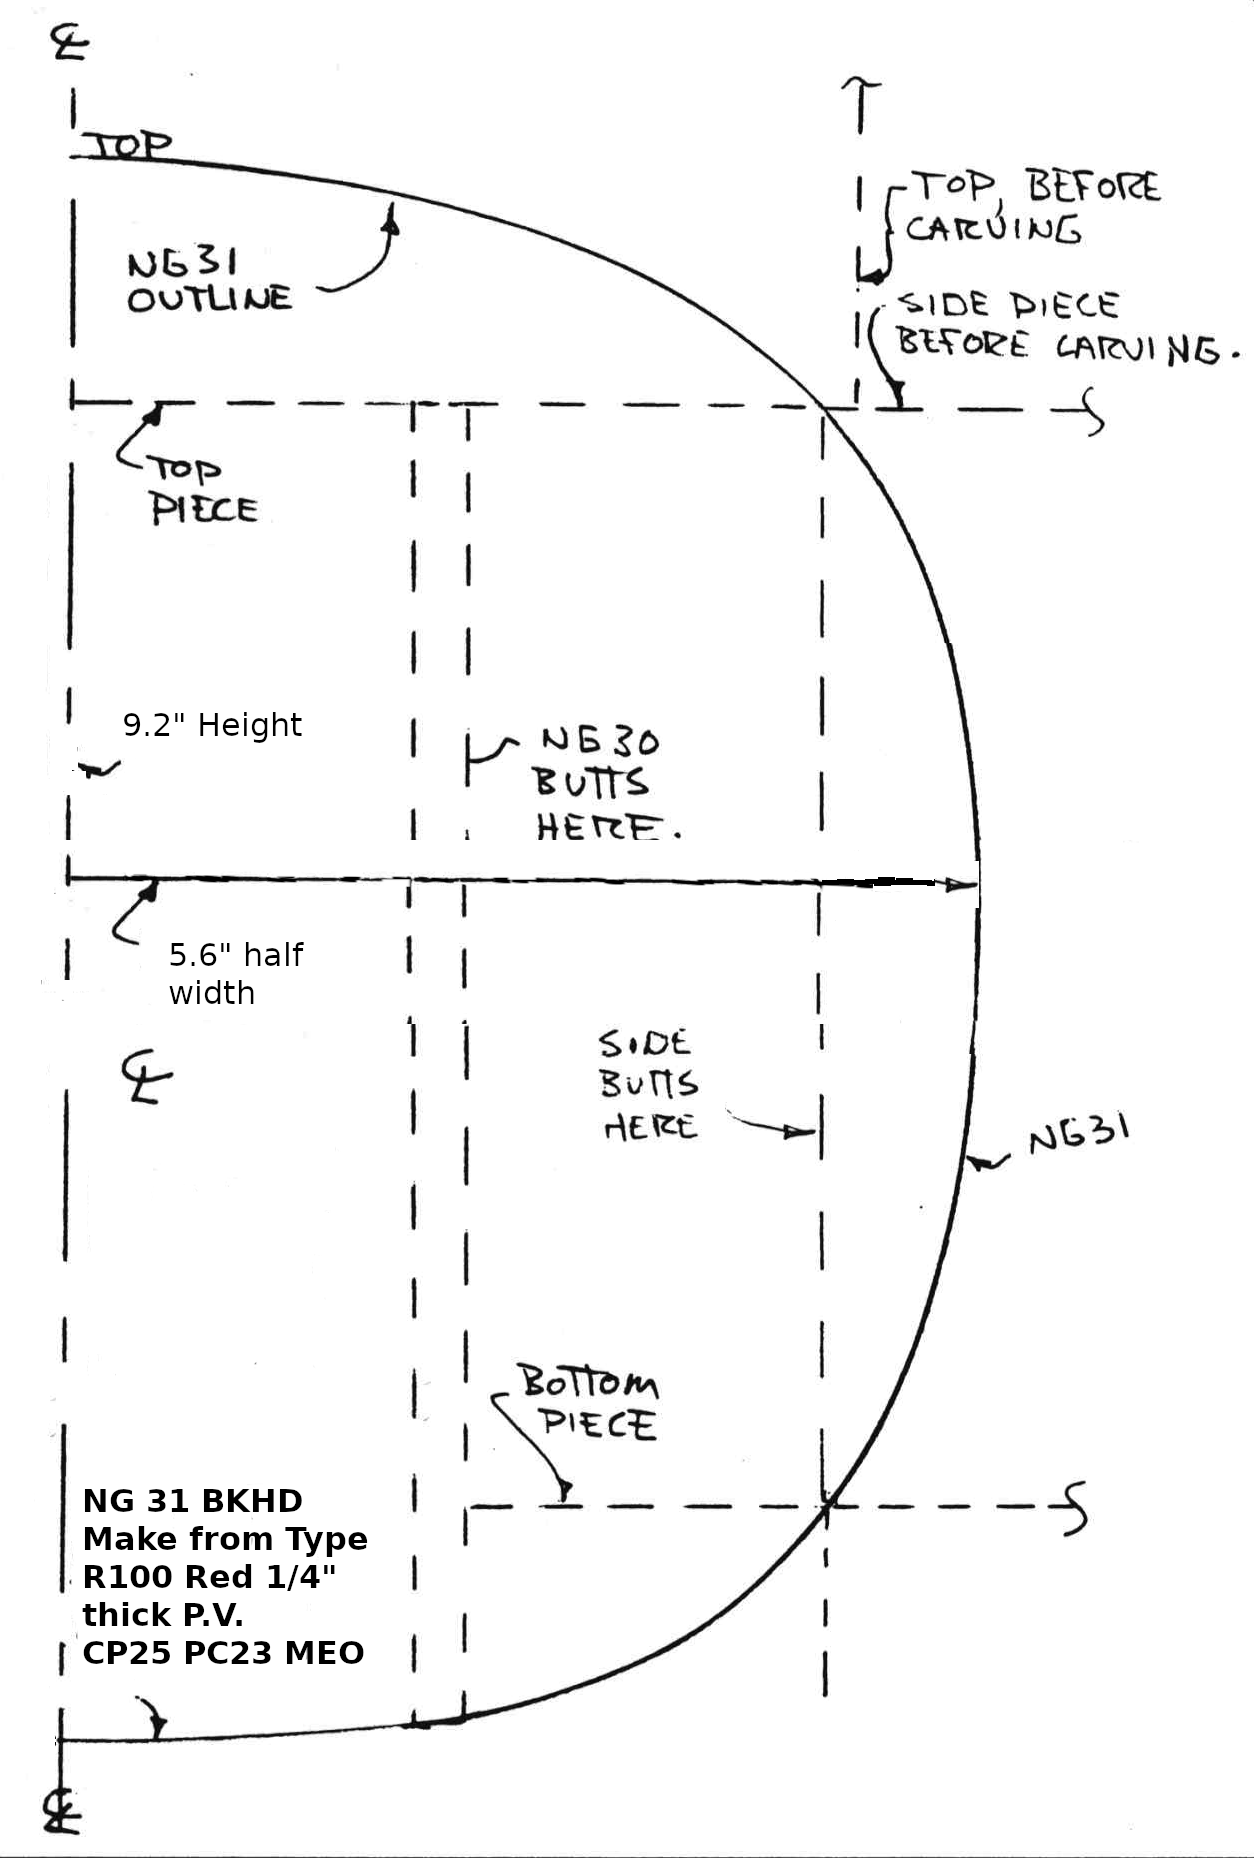 ℄
TOP
TOP, BEFORE
CARVING
NG31
OUTLINE
SIDE PIECE
BEFORE CARVING.
TOP
PIECE
9.2" Height
NG30
BUTTS
HERE.
5.6" half
width
SIDE
BUTTS
HERE
℄
NG31
BOTTOM
PIECE
NG 31 BKHD
Make from Type
R100 Red 1/4"
thick P.V.
CP25 PC23 MEO
℄